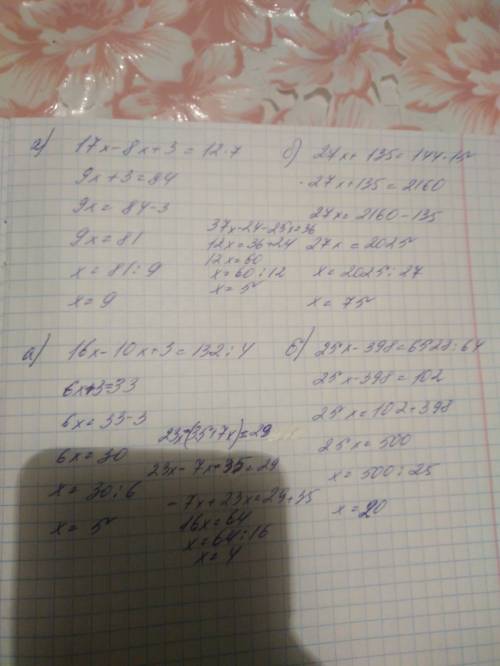 а) 17x-8x+3=12·7
9x+3=84
9x=84-3
9x=81
x=81:9
x=9
37x-24-25x=36
12x=36+24
12x=60
x=60:12
x=5
б) 27x+135=144·15
27x+135=2160
27x=2160-135
27x=2025
x=2025:27
x=75
а) 16x-10x+3=132:4
6x+3=33
6x=33-3
6x=30
x=30:6
x=5
23x-(35+7x)=29
23x-7x+35=29
-7x+23x=29+35
16x=64
x=64:16
x=4
б) 25x-398=6528:64
25x-398=102
25x=102+398
25x=500
x=500:25
x=20